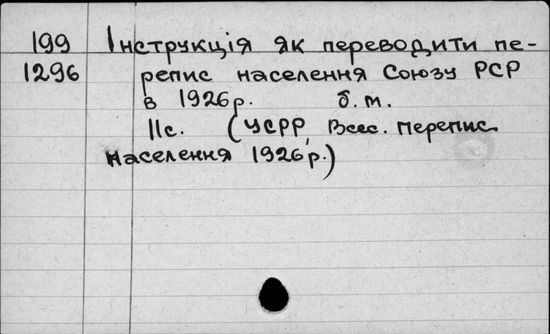 199 Інструкція як переводити пе-
1296 репис населення Союзу РСР
в 1926р. б.м.
11с. (УСРР, Всес. перепис
населення 1926р.)